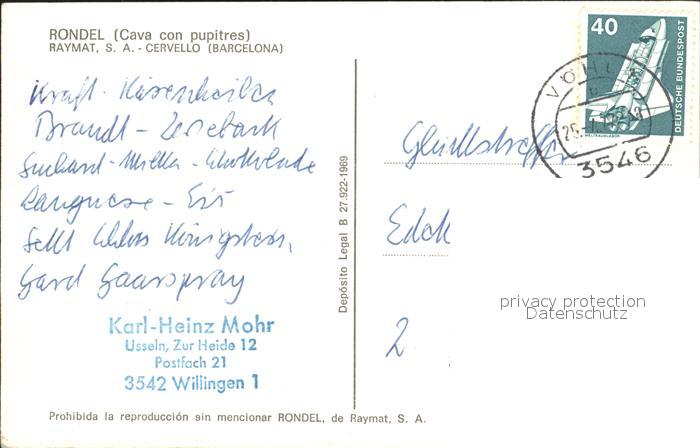 RONDEL (Cava con pupitres)
RAYMAT, S. A. - CERVELLO (BARCELONA)
Kraft - Käsescheiben
Brandt - Zwieback
Suchard - Milka - Schokolade
Langnese - Eis
Sekt Schloss Königstein,
Gard Haarspray
Karl-Heinz Mohr
Usseln, Zur Heide 12
Postfach 21
3542 Willingen 1
Prohibida la reproducción sin mencionar RONDEL, de Raymat, S. A.
Depósito Legal B 27.922-1969
40
DEUTSCHE BUNDESPOST
WELTRAUMLABOR
VÖHL
3546
Glückstreffer
Edek
2
privacy protection
Datenschutz